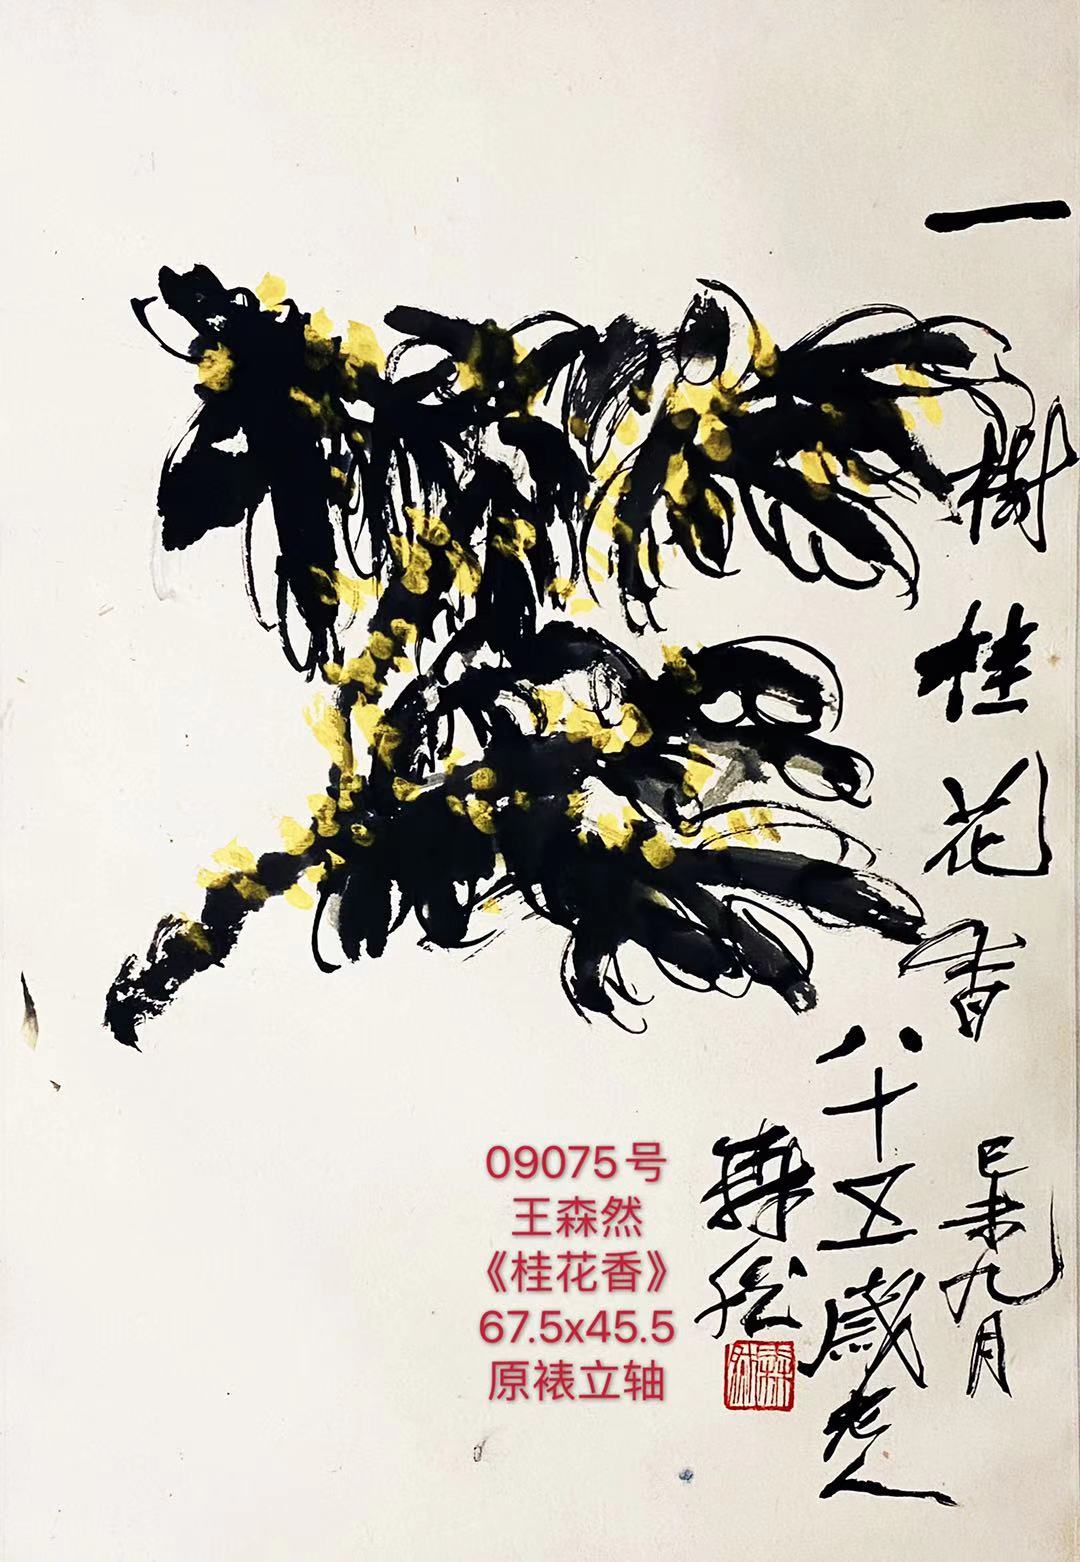 一樹桂花香
己未九月
八十五歲老人
森然
09075号
王森然
《桂花香》
67.5x45.5
原裱立轴